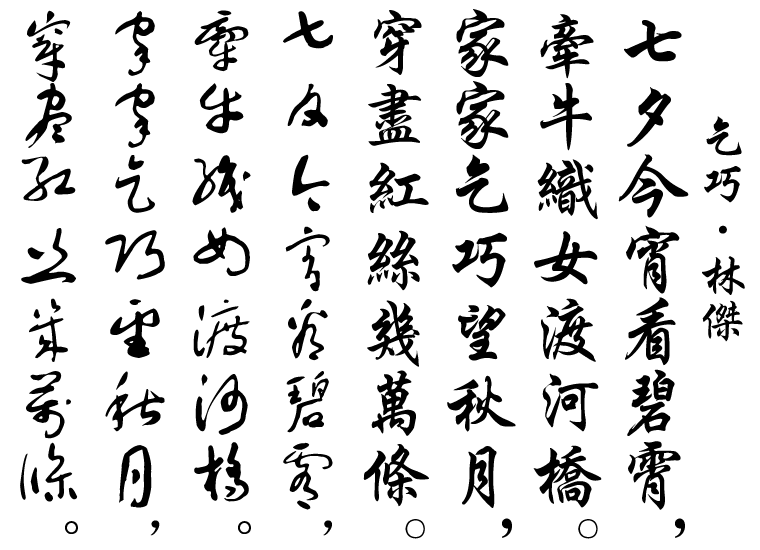 乞巧·林傑
七夕今宵看碧霄，
牽牛織女渡河橋。
家家乞巧望秋月，
穿盡紅絲幾萬條。
七夕今宵看碧霄，
牽牛織女渡河橋。
家家乞巧望秋月，
穿盡紅絲幾萬條。